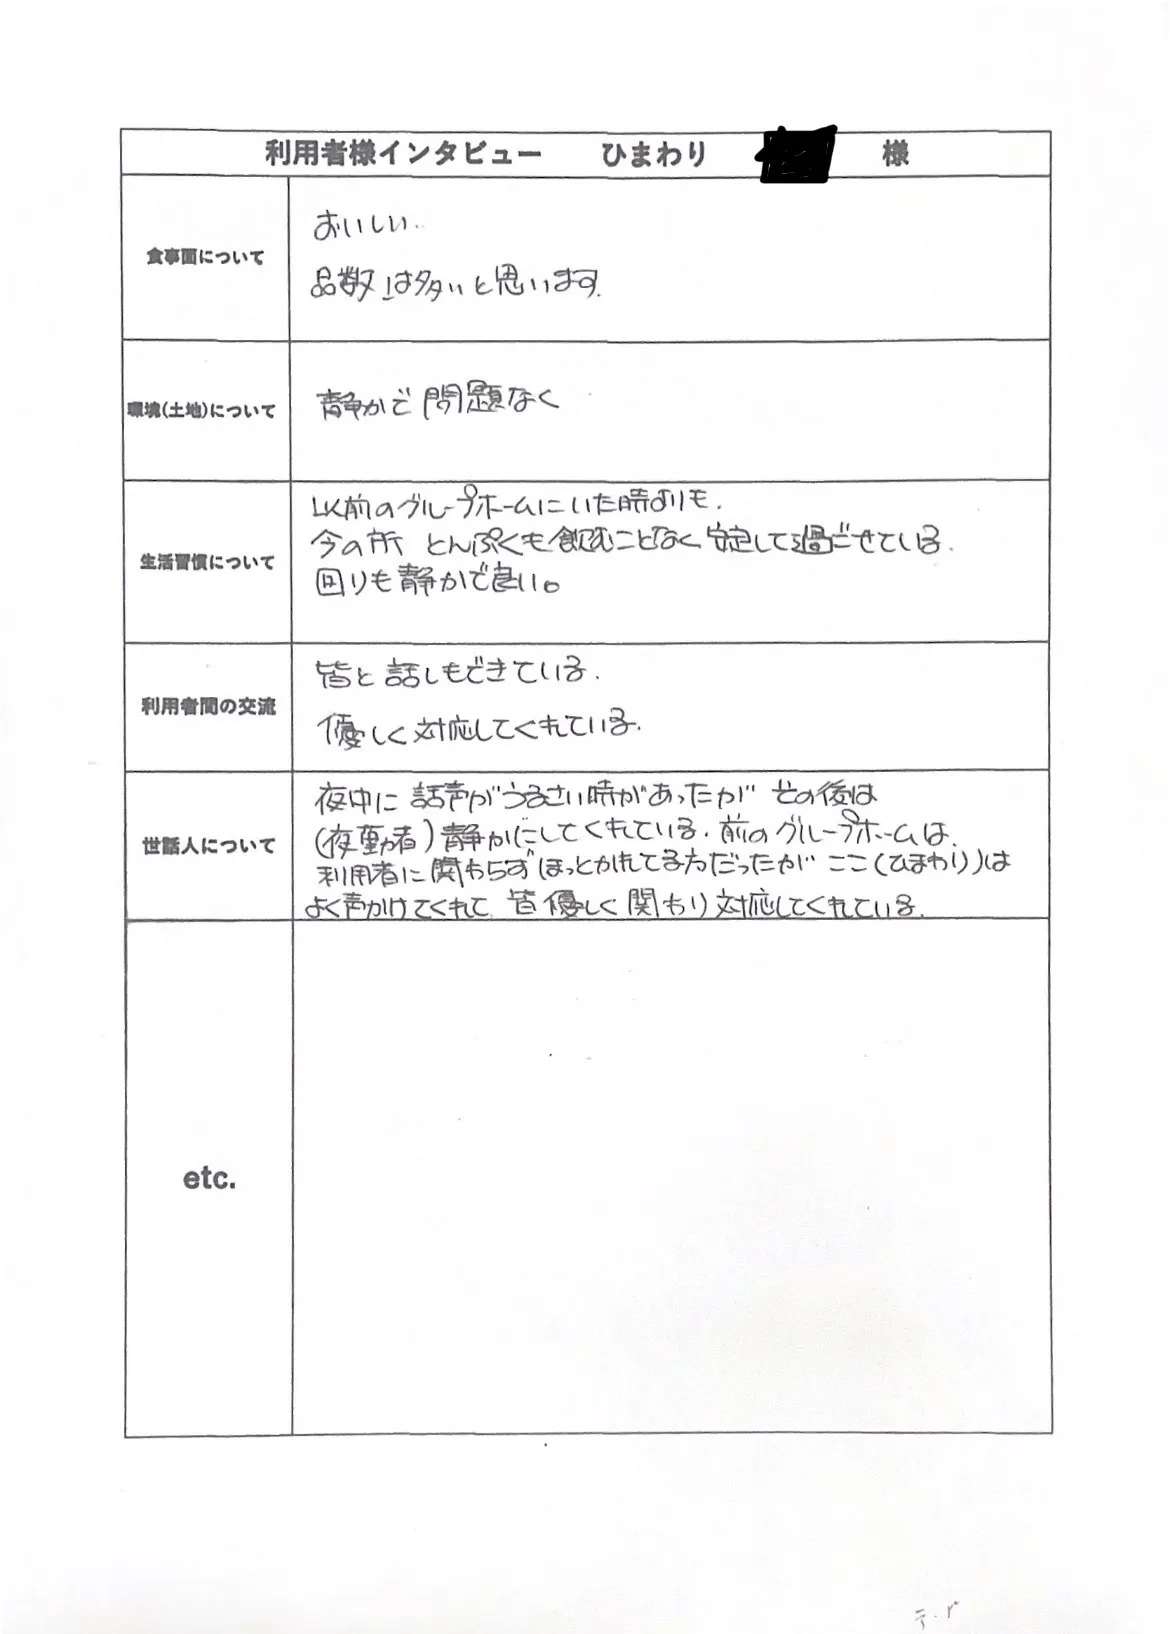 利用者様インタビュー ひまわり 様
食事面について
おいしい.
品数は多いと思います.
環境(土地)について
静かで問題なく
生活習慣について
以前のグループホームにいた時よりも.
今の所 とんぷくも飲むことなく安定して過ごせている.
回りも静かで良い。
利用者間の交流
皆と話しもできている.
優しく対応してくれている.
世話人について
夜中に話声がうるさい時があったが その後は
(夜勤者)静かにしてくれている. 前のグループホームは.
利用者に関わらずほっとかれてる方だったが ここ(ひまわり)は
よく声かけてくれて 皆優しく関わり対応してくれている.
etc.